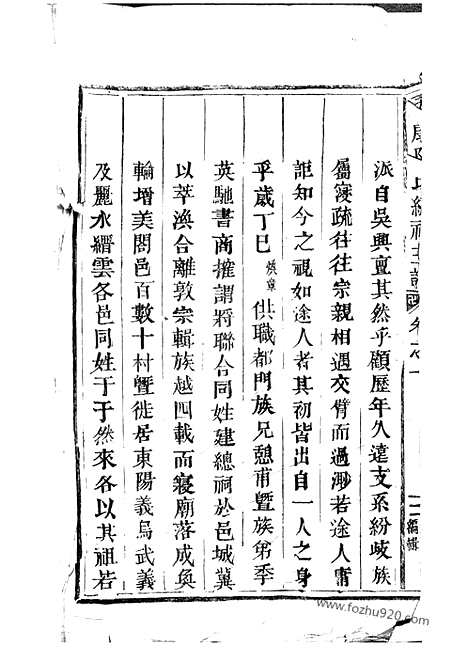 派自吳興亶其然乎顧歷年久遠支系紛歧族
屬寖疏往往宗親相遇交臂而過渺若途人庸
詎知今之視如途人者其初皆出自一人之身
乎歲丁巳煥章供職都門族兄憩甫暨族弟季
英馳書商搉謂將聯合同姓建總祠於邑城冀
以萃渙合離敦宗輯族越四載而寢廟落成奐
輪增美閤邑百數十村暨徙居東陽義烏武義
及麗水縉雲各邑同姓于于然來各以其祖若
氏總祠主譜
卷之一
二
編輯
www.fozhu920.com